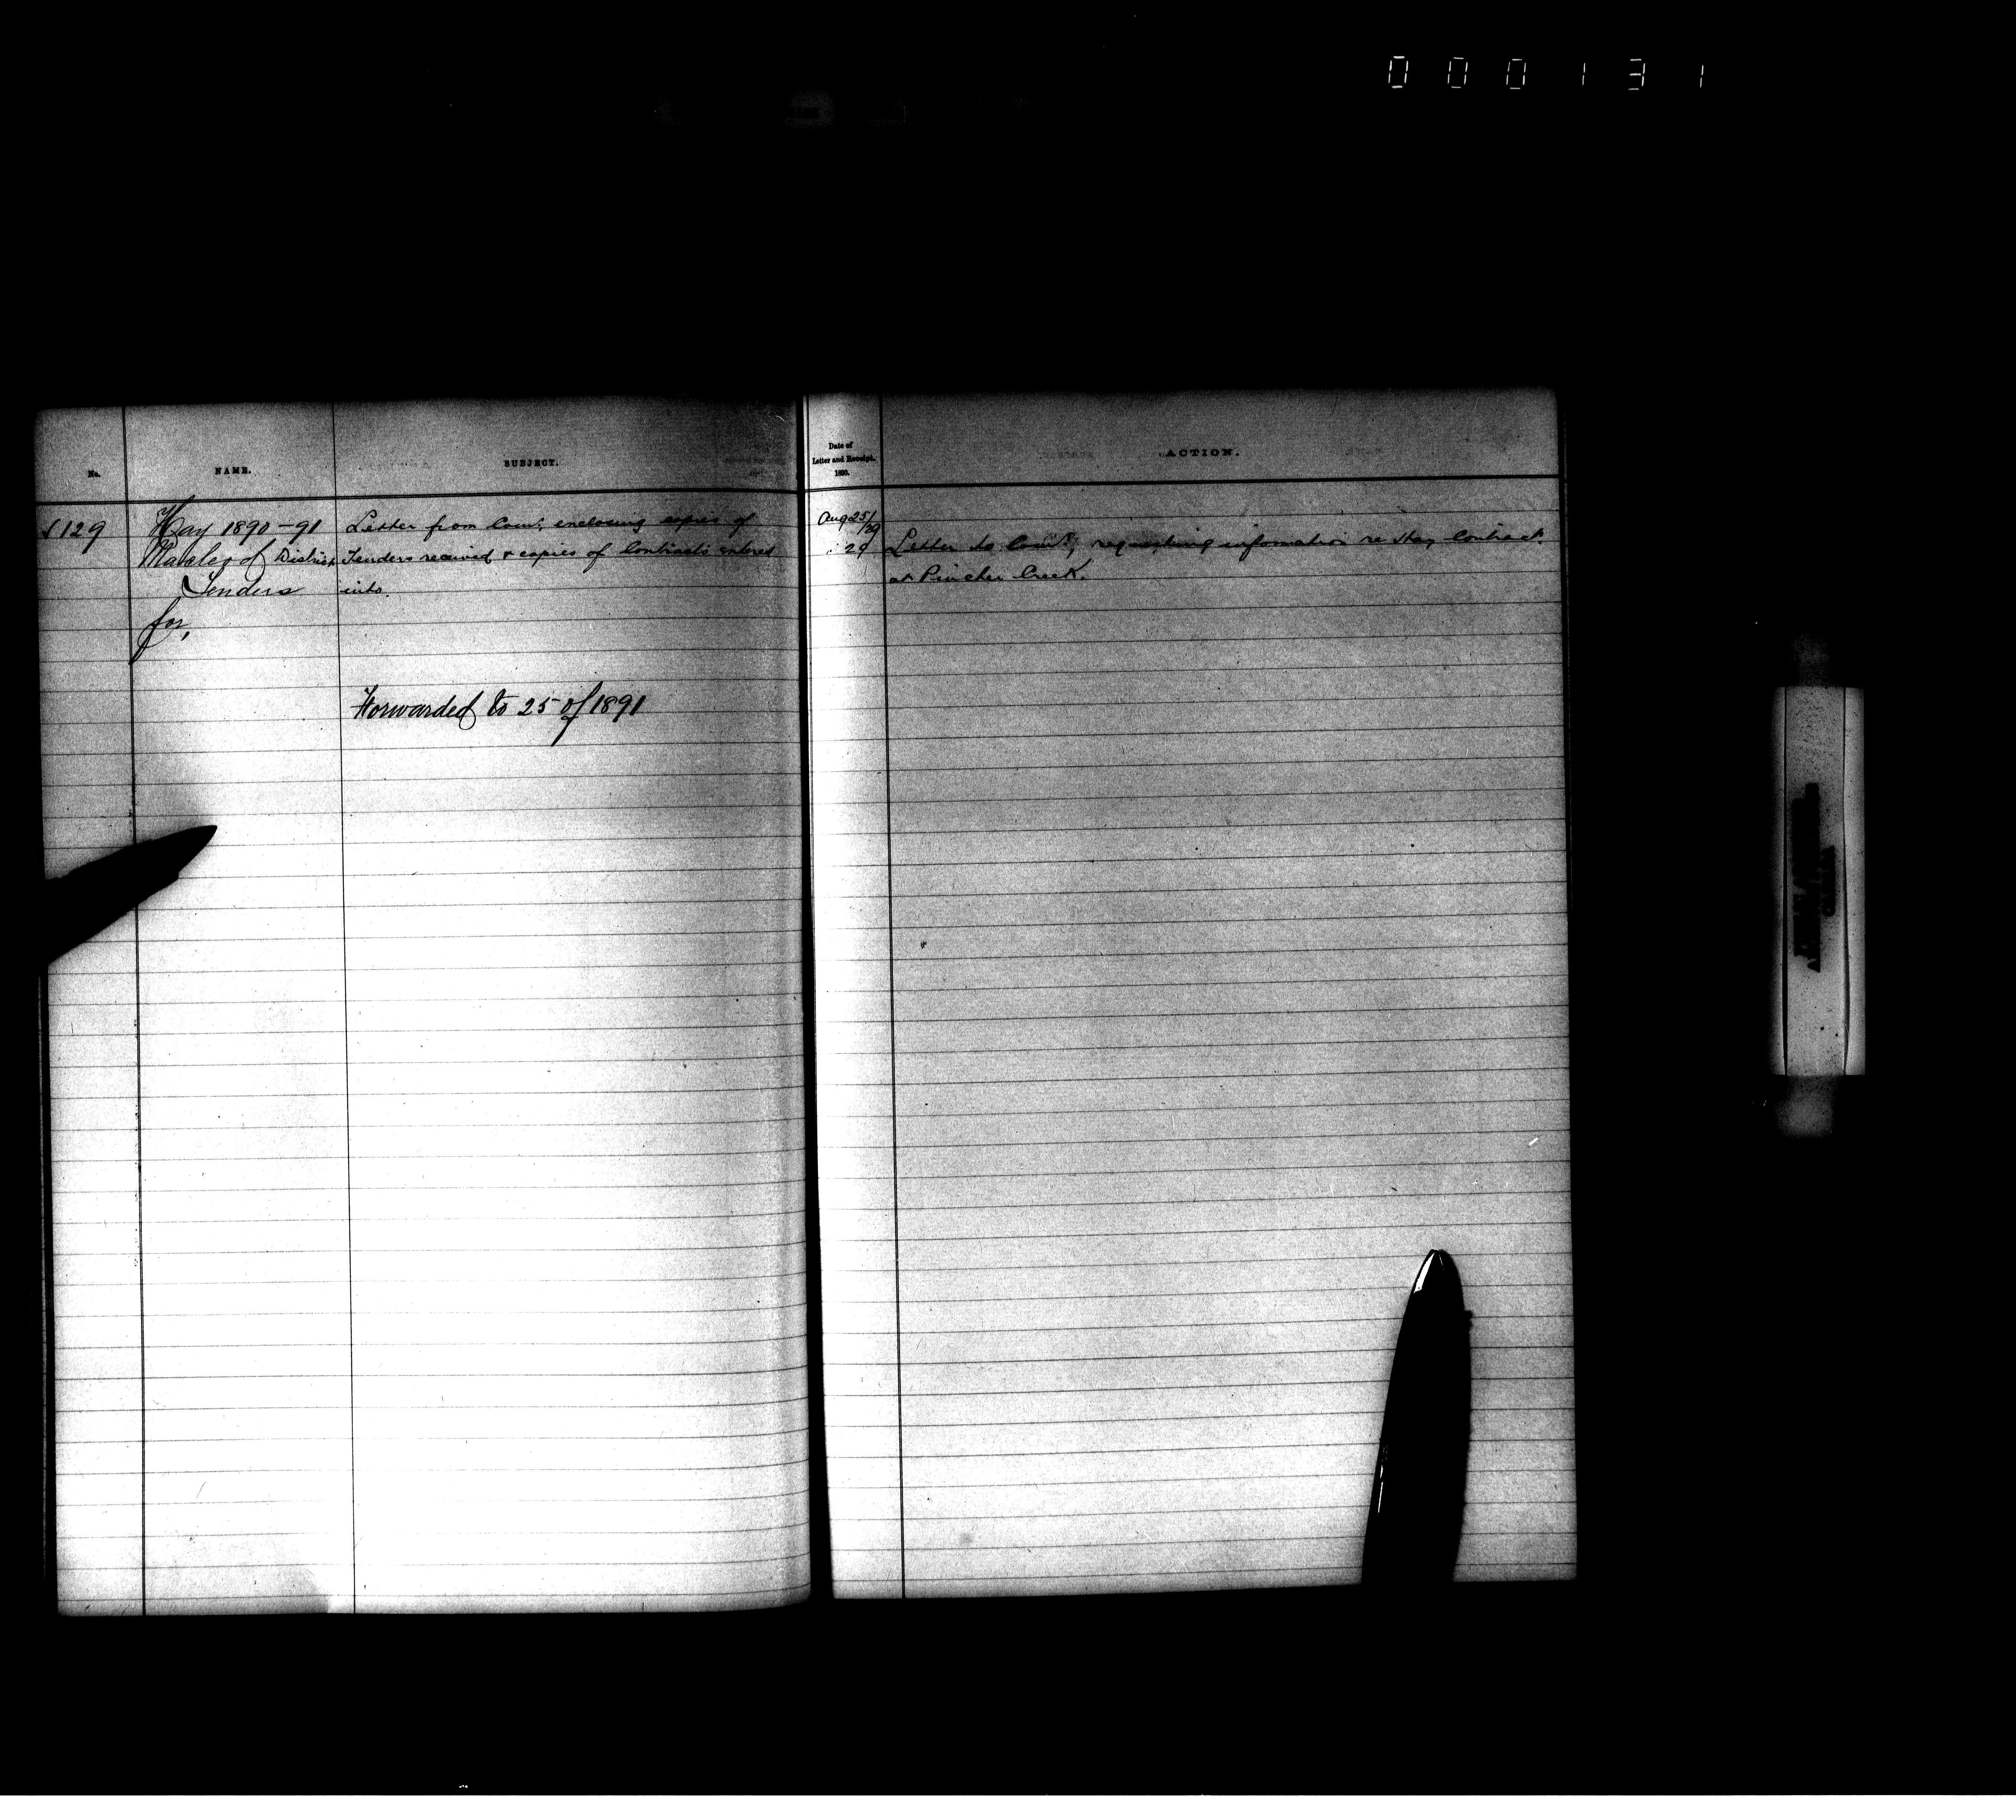 000131
No.
NAME.
SUBJECT.
Date of
Letter and Receipt.
1890.
ACTION.
129
Hay 1890-91
Macleod District
Tenders
for,
Letter from Comr, enclosing copies of
Tenders received & copies of Contracts entered
into.
Forwarded to 25 of 1891
Aug 25/29
" 29
Letter to Comr, requesting information re Hay Contract
at Pincher Creek.